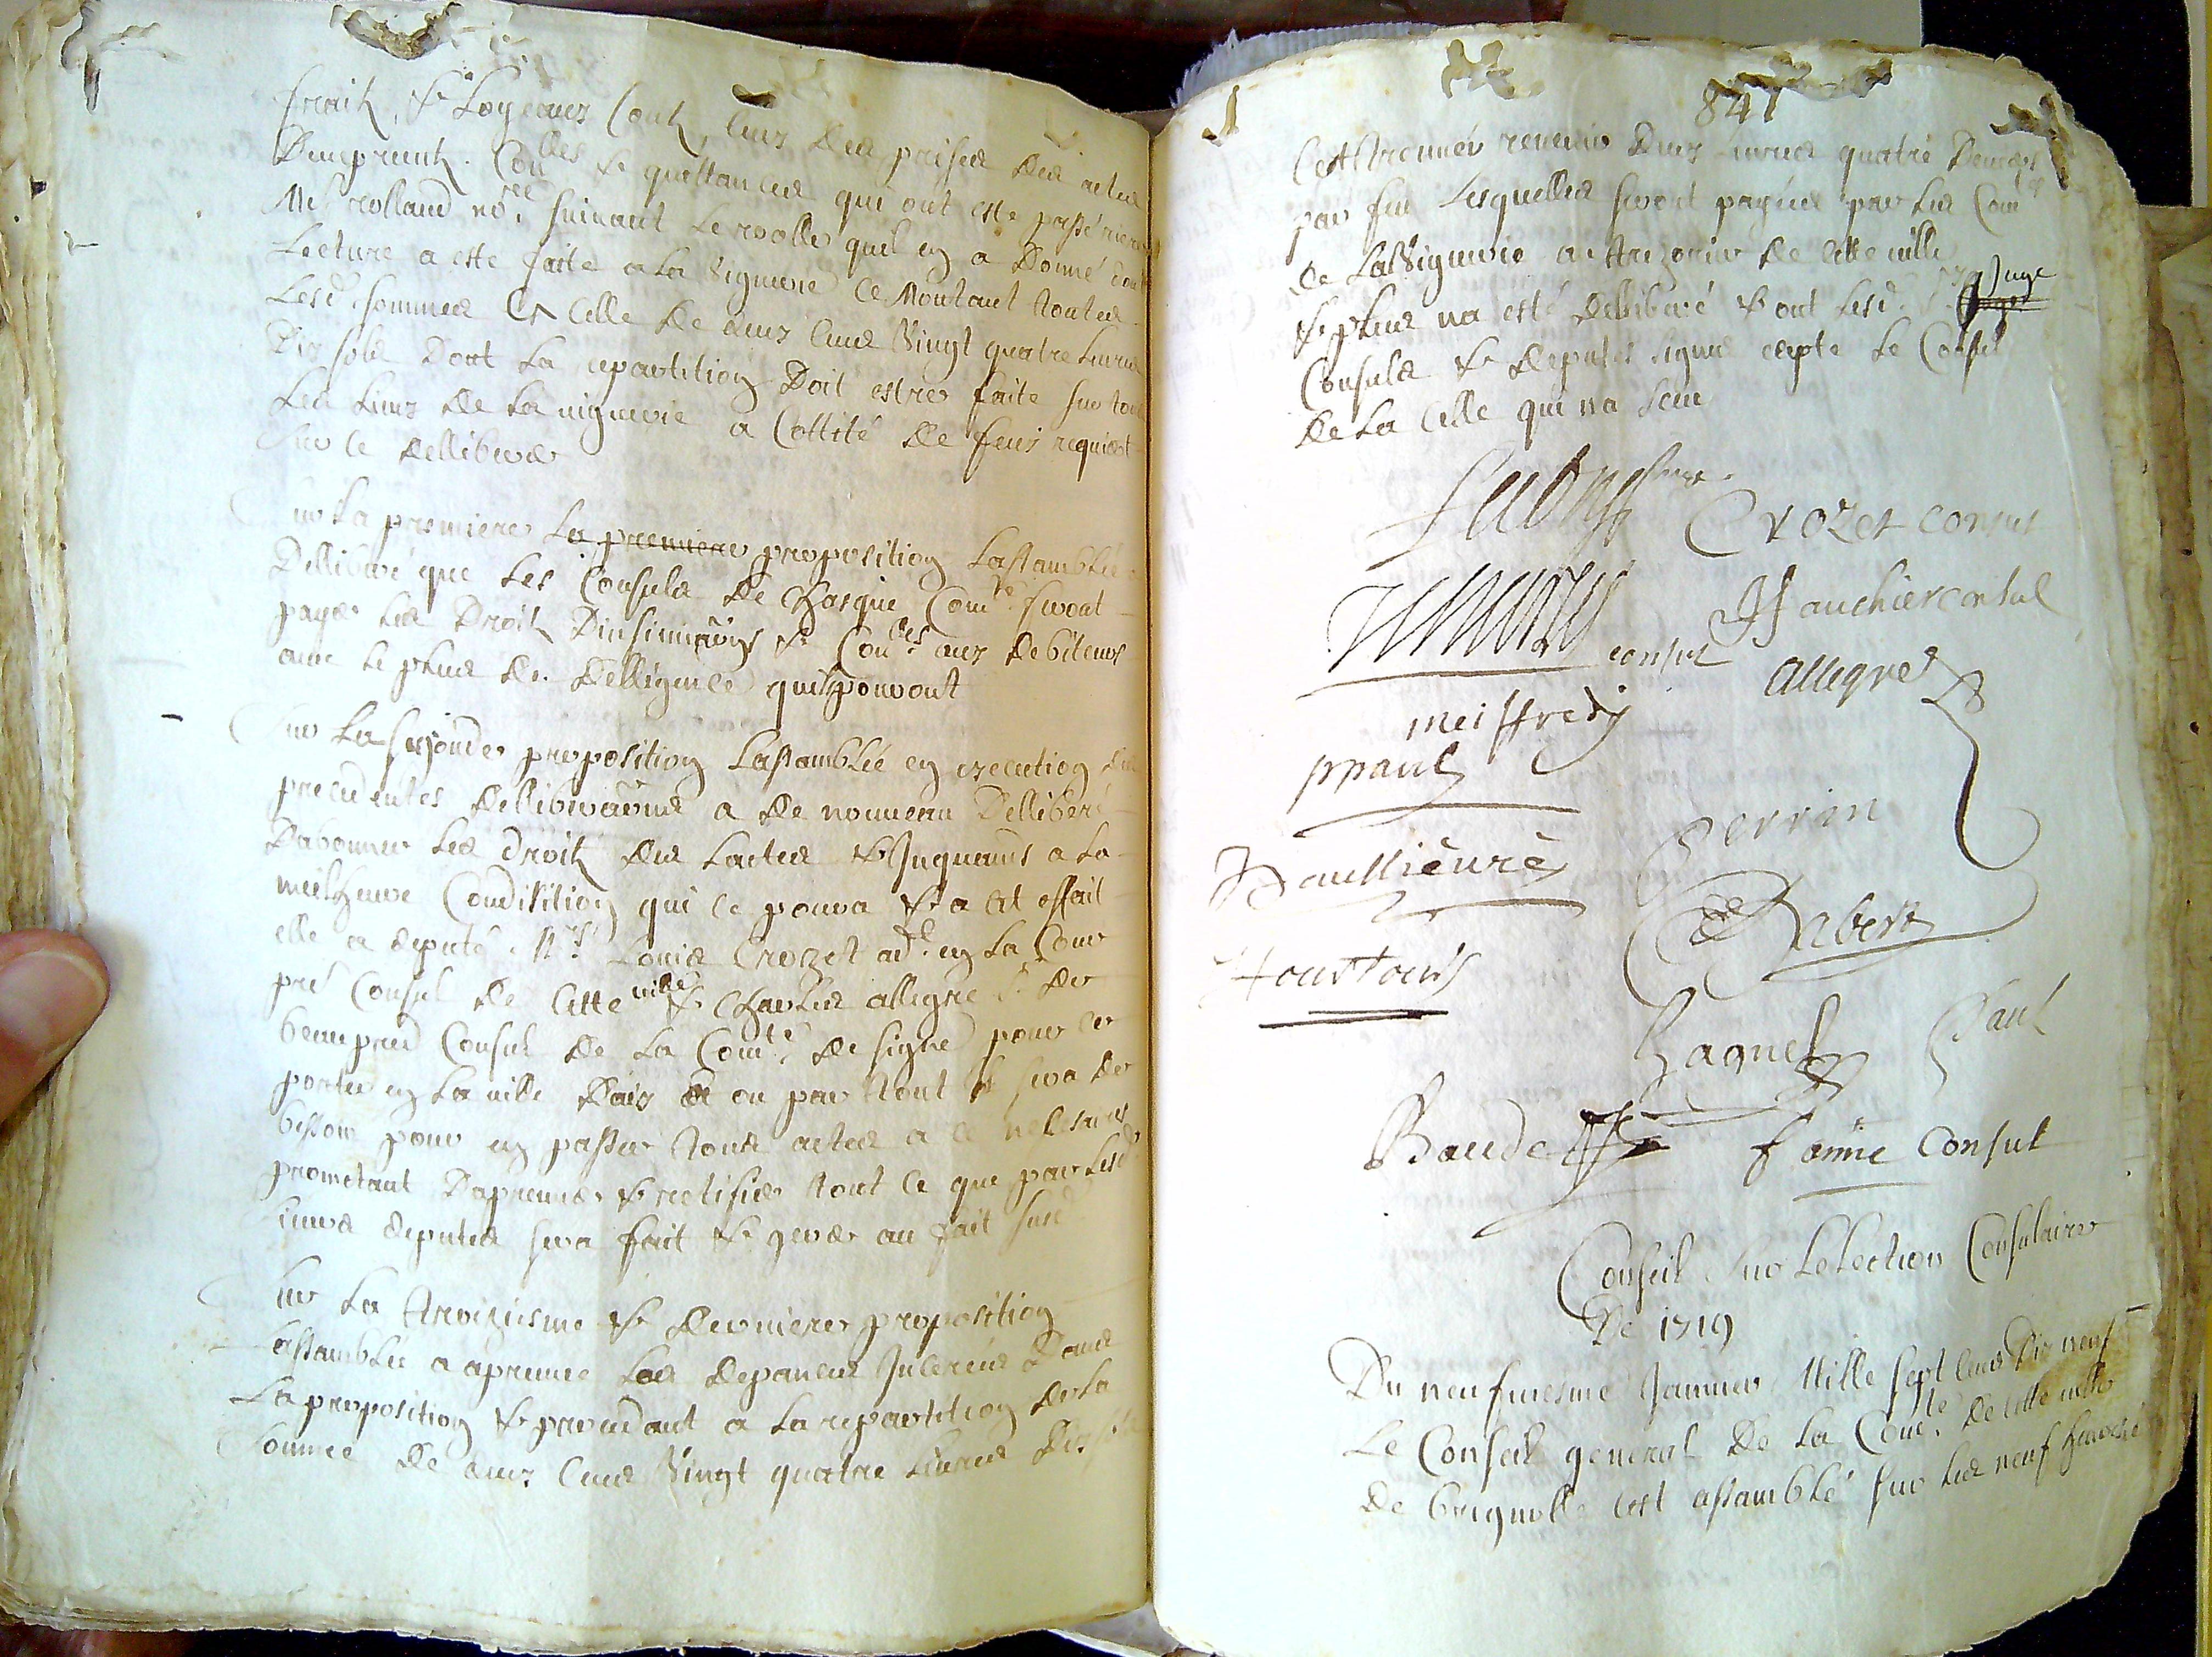 fraitz & Loyeaux Coutz, ceux des prises des actes
Demprunt. Con^lles & quittances qui ont este passé riere
M^e rolland no^re suivant Le roolle quil en a Donné dont
Lecture a este faite a La Viguerie ce Montant toutes
Lesd. sommes a Celle de deux Cens Vingt quatre Livres
Dix sols Dont La repartition Doit estre faite sur tous
Les Lieux de La viguerie a Cottité de feux requiert
Sur ce delliberer
Sur La premiere La premiere proposition Lassamblée
Delliberé que Les Consuls de Chasque Com^te feront
payer Les Droitz Dinsinuaõns & Con^lles aux debiteurs
avec Le plus de Delligence quilz pouront
Sur La segonde proposition Lassamblée en execution des
precedentes Delliberaõns a de nouveau Delliberé
Dabonner Les droitz des Lactes & Inquants a La
meilheure Condisition qui ce poura & a cet effait
elle a deputé M^rs Louis Crozet ad^t en La Cour
p^re Consul de Cette ville & Charles allegre S^r de
beaupred Consul de La Com^te de signe pour ce
porter en La ville Daix ou par tout ou sera de
besoin pour en passer tous actes a ce nessaires
prometant Daprouver & rectifier tout ce que par Lesd.
sieurs deputés sera fait & gerer au fait susd.
Sur La troizieme & derniere proposition
Lassamblée a aprouvé Les depances Incerées dans
La proposition & procedant a La repartition de La
somme de deux Cens Vingt quatre Livres Dix sols
841
Cest trouvér revenir deux Livres quatre Deniers
par feu Lesquelles seront payées par Les Com^tes
de La Viguerie au trezorier de Cette ville
& plus na esté Delliberé & ont Lesd. S^rs Juge
Consuls & deputés signé exepté Le Consul
de La Celle qui na sceu
Juge
Crozet consul
consul
J fauchier consul
allegre
meiffredy
ppaul
Perrin
Baullieure
Rebert
toustous
Gagnel
Paul
Baude
fanne Consul
Conseil Sur Lelection Consulaire
De 1719
Du neufviesme Janvier Mille sept Cens Dix neuf
Le Conseil general de La Com^te de Cette ville
de brignolle cest assamblé sur Les neuf heures